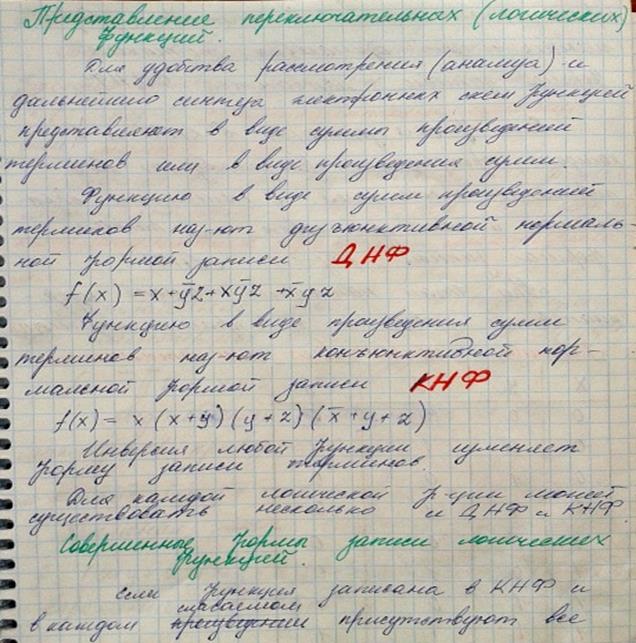 Представление переключательных (логических)
функций.
Для удобства рассмотрения (анализа) и
дальнейшего синтеза электронных схем функций
представляют в виде суммы произведений
терминов или в виде произведения сумм.
Функцию в виде сумм произведений
терминов наз-ют дизъюнктивной нормаль-
ной формой записи ДНФ
f(x) = x+y̅z+xy̅z+x̅yz
Функцию в виде произведения сумм
терминов наз-ют конъюнктивной нор-
мальной формой записи КНФ
f(x) = x (x+y) (y+z) (x̅+y+z)
Инверсия любой функции изменяет
форму записи терминов.
Для каждой логической ф-ции может
существовать несколько и ДНФ и КНФ
Совершенные формы записи логических
функций.
если функция записана в КНФ и
слагаемом
в каждом произведении присутствуют все